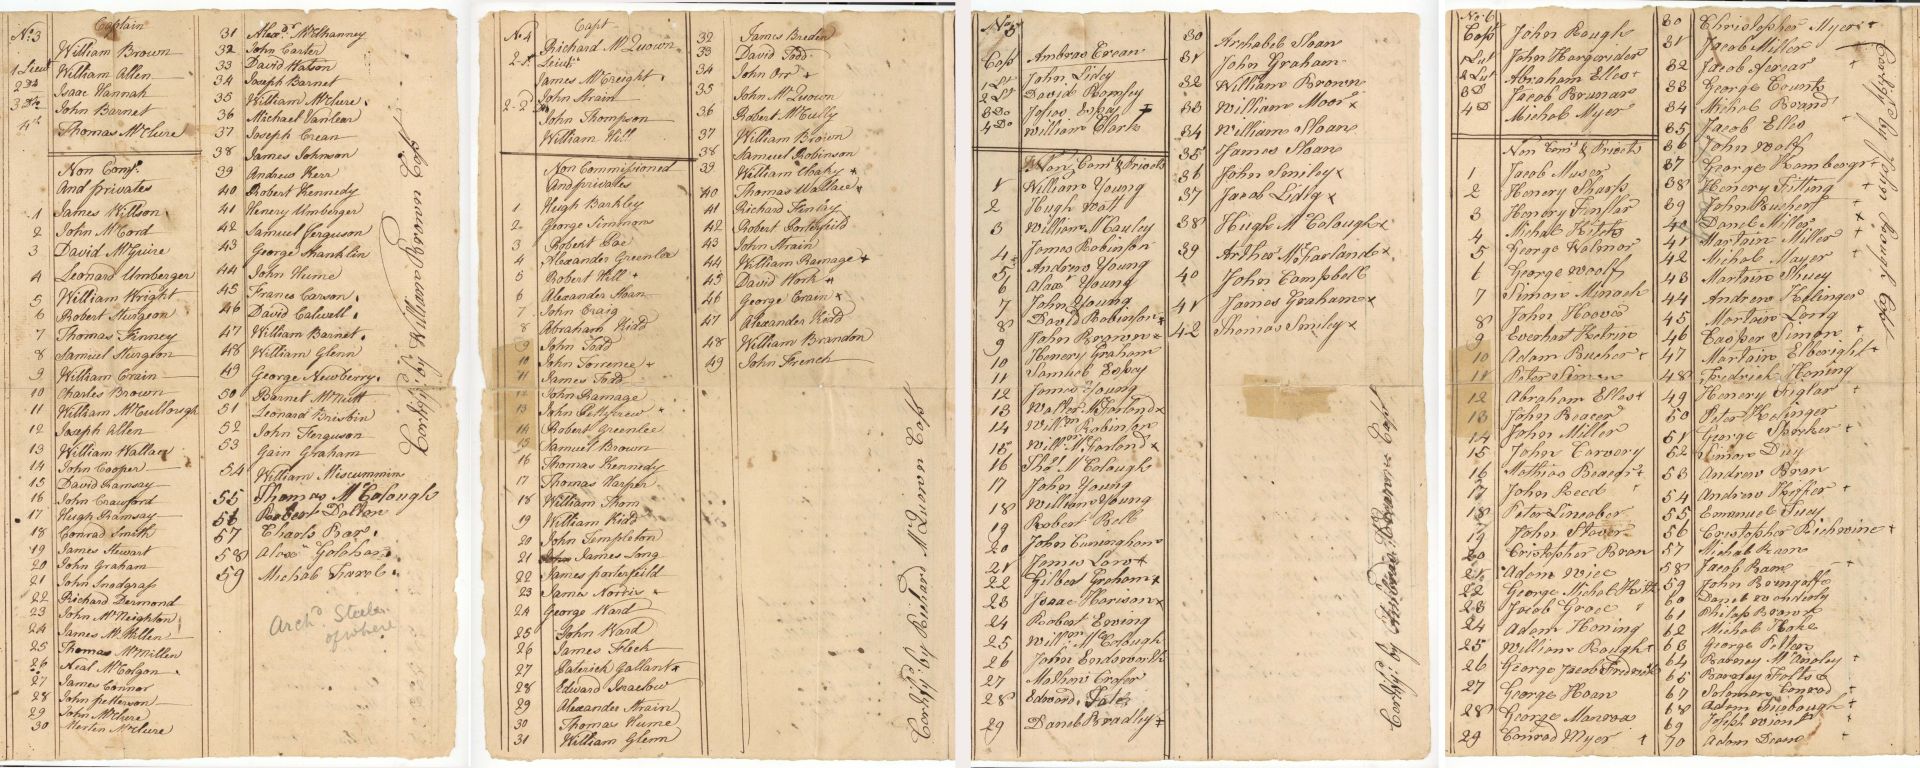 No 3
Captain
William Brown
1 Lieut William Allen
2 Do Isaac Hannah
3 Do John Barnet
4th Thomas McClure
Non Com.
And privates
1 James Willson
2 John McCord
3 David McGuire
4 Leonard Umberger
5 William Wright
6 Robert Sturgeon
7 Thomas Finney
8 Samuel Sturgeon
9 William Crain
10 Charles Brown
11 William McCullough
12 Joseph Allen
13 William Wallace
14 John Cooper
15 David Ramsay
16 John Crawford
17 Hugh Ramsay
18 Conrad Smith
19 James Stewart
20 John Graham
21 John Snodgrass
22 Richard Dermond
23 John McNeighton
24 James McMillen
25 Thomas McMillen
26 Neal McColgon
27 James Connor
28 John petterson
29 John McClure
30 Merten McClure
31 Alexr. McIlhanney
32 John Carter
33 David Watson
34 Joseph Barnet
35 William McClure
36 Michael Vanlear
37 Joseph Crean
38 James Johnson
39 Andrew Kerr
40 Robert Kennedy
41 Henery Umberger
42 Samuel Ferguson
43 George Shanklin
44 John Hume
45 Frances Carson
46 David Calwell
47 William Barnet
48 William Glenn
49 George Newberry
50 Barnet McNutt
51 Leonard Brisbin
52 John Ferguson
53 Gain Graham
54 William Miscummins
55 Thomas McColough
56 Robert Dalton
57 Charls Bar
58 Alexr
59 Michael
Archd. Steele
of where
Certify. by William Brown Capt
No 4
Capt
Richard McQuown
Lieut.
James McCreight
John Strain
John Thompson
William Hill
Non Commissioned
And privates
1 Hugh Barkley
2 George Simmons
3 Robert Coe
4 Alexander Greenlee
5 Robert Hill +
6 Alexander Sloan
7 John Craig
8 Abraham Kidd
9 John Todd
10 John Torrence +
11 James Todd
12 John Ramage
13 John Pettycrew +
14 Robert Greenlee
15 Samuel Brown
16 Thomas Kennedy
17 Thomas Harper
18 William Thom
19 William Kidd
20 John Templeton
21 James Long
22 James porterfeild
23 James Norris +
24 George Ward
25 John Ward
26 James Fleck
27 Paterick Gallant +
28 Edward Israelow
29 Alexander Strain
30 Thomas Hume
31 William Glenn
32 James Breden
33 David Todd
34 John Orr +
35 John McQuown
36 Robert McCully
37 William Brown
38 Samuel Robinson
39 William Cloaky +
40 Thomas Wallace +
41 Richard Finley
42 Robert Porterfeild
43 John Strain
44 William Ramage +
45 David Work +
46 George Crain +
47 Alexander Kidd
48 William Brandon
49 John French
Certify. by Richard McQuown Capt
No 5
Capt Ambros Crean
1 Lt John Lidey
2 Lt David Ramsey
3 Do Josias Espey +
4 Do William Clark
Non Comd. & Privets
1 William Young
2 Hugh Watt
3 William McCauley
4 James Robinson
5 Andrew Young
6 Alaxr Young
7 John Young
8 David Robinson +
9 John Brown +
10 Henery Graham
11 Samuel Espey
12 James Young
13 Walter McFarland x
14 Willm. Robinson
15 Willm. McFarland x
16 Thos McColough
17 John Young
18 William Young
19 Robert Bell
20 John Cuningham
21 James Low +
22 Gilbert Greham +
23 Isaac Harison x
24 Robert Ewing
25 Willm McColough
26 John Endsworth
27 Mathew Crafer
28 Edward
29 Daniel Bradley +
30 Archabel Sloan
31 John Graham
32 William Brown
33 William Moor x
34 William Sloan
35 James Sloan
36 John Smiley x
37 Jacob Lidig x
38 Hugh McColough x
39 Arther McFarland x
40 John Campbell
41 James Graham x
42 Thomas Smiley x
Certify. by Ambros Crean Capt
No. 6
Capt John Rough
1 Lut John Hargerider
2 Lut Abraham Elles +
3 D Jacob Brunar
4 D Michal Myer
Non Comd. & Privets
1 Jacob Muser
2 Henery Sharp
3 Henery Finslar
4 Michal Kitch
5 George Walmor
6 George Woolf
7 Simon Minach
8 John Hoover
9 Everhart Katrin
10 Adam Bucher +
11 Peter Simon
12 Abraham Elles +
13 John Beacer
14 John Miller
15 John Carvery
16 Mathias Beard +
17 John Reed +
18 Peter Lineaber
19 John Stover
20 Cristopher Bran
21 Adam Wier
22 George Michal
23 Jacob Grace
24 Adam Honing
25 William Rough +
26 George Jacob Fredrick
27 George Haan
28 George Manroa
29 Conrad Myer +
30 Christopher Myer +
31 Jacob Miller
32 Jacob
33 George Counts
34 Michal Brand
35 Jacob Elles
36 John Wolf
37 George Hamberger
38 Henery Fitting
39 John Bucher
40 Daniel Miller
41 Martain Miller
42 Michal Mayer
43 Martain Shuey
44 Andrew Helinger
45 Martain Long
46 Casper Simon +
47 Martain Elbright +
48 Fredrick Honing
49 Henery Siglar
50 Peter Helinger
51 George Sharker +
52 Simon Duy
53 Andrew Bran
54 Andrew Kiffer +
55 Emanuel Suey
56 Cristopher Richwine +
57 Michal Ram
58 Jacob Bam
59 John Bumgalf
60 Danel Wonderly
61 Philap Brown
62 Michal Hoke
63 George Petters
64 Barney McAnoley
65 Baraley Folts
67 Solomon Conrad
68 Adam Firebough
69 Joseph Wiont
70 Adam Dean
Certify by John Rough Capt